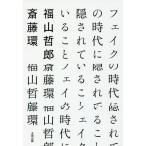 フェイクの時代に隠されて
の時代に隠されていること
隠されていることフェイク
いることフェイクの時代に
福山哲郎 福山哲郎
斎藤環 斎藤環